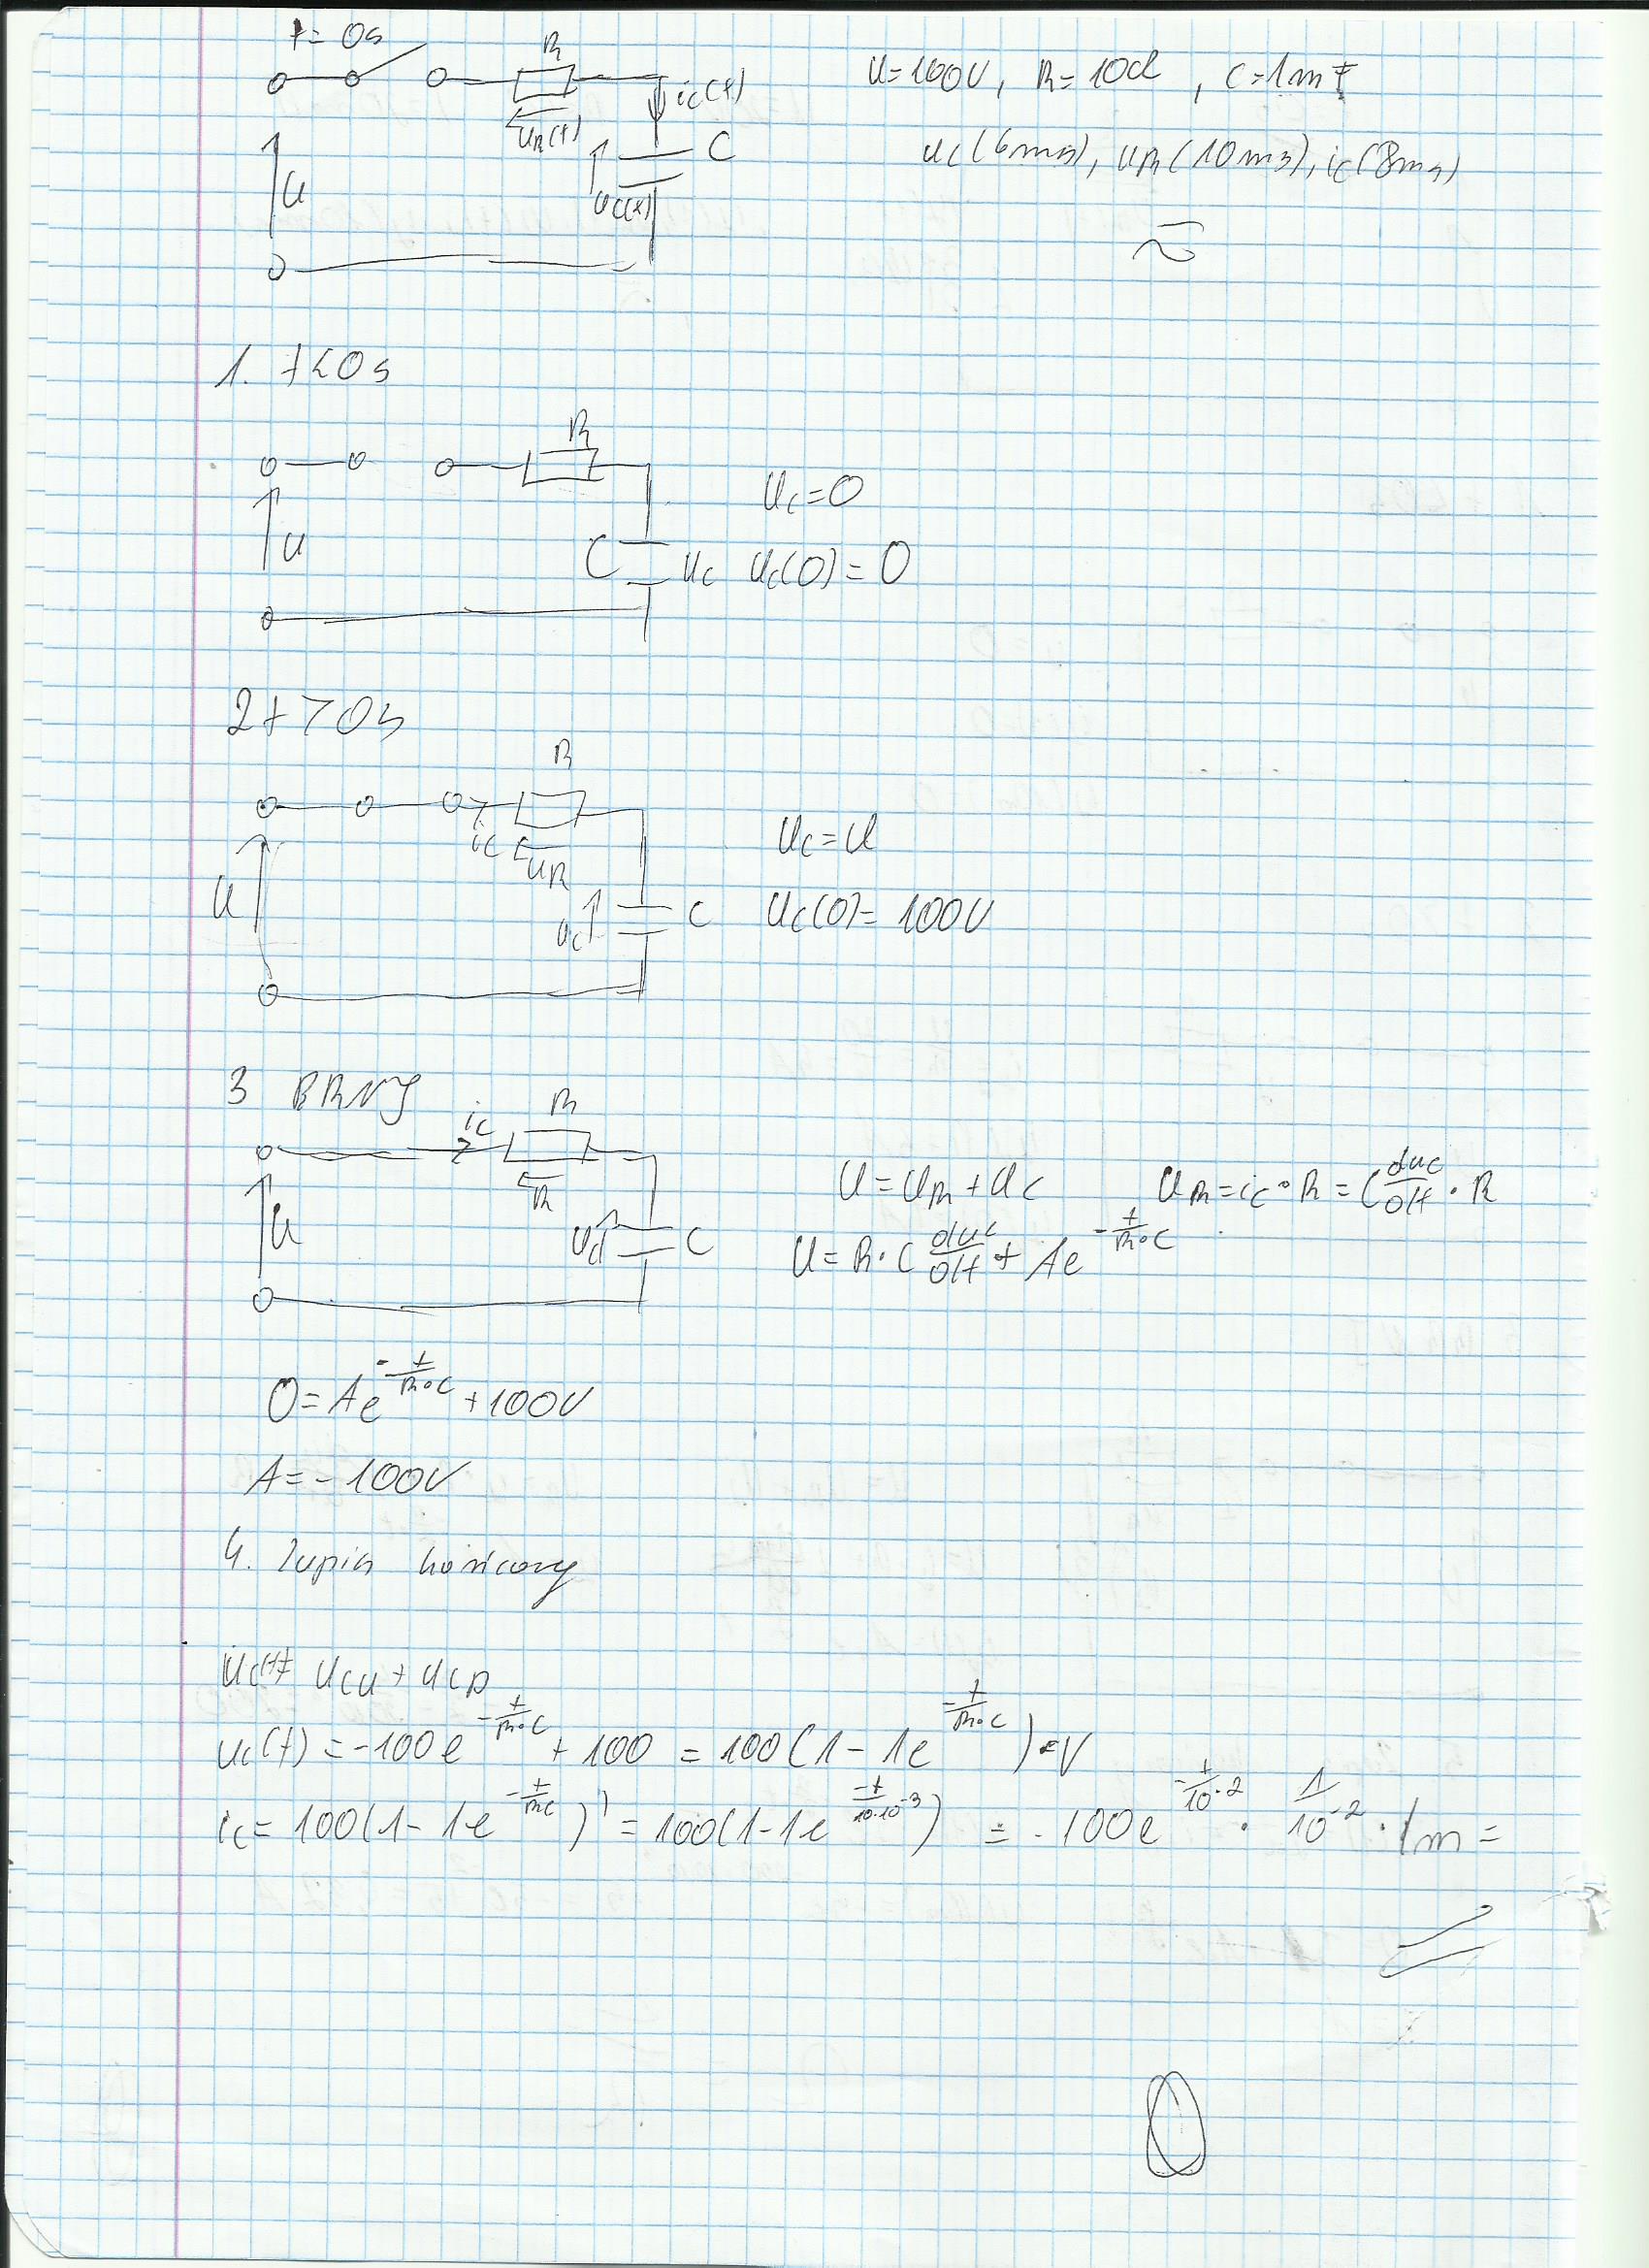 t = 0s
R
U=100V, R=10Ω, C=1mF
ic(t)
uR(t)
C
uc(6ms), uR(10ms), ic(8ms)
U
uc(t)
1. t<0s
R
Uc=0
U
C
Uc Uc(0)=0
2 t>0s
R
ic
uR
Uc=U
U
uc
C
Uc(0)=100V
3
ic
R
R
U=UR+Uc UR=ic·R=C duc/dt·R
U
uc
C
U=R·C duc/dt + Ae^-t/R·C
0=Ae^-t/R·C +100V
A=-100V
4. Zapis końcowy
uc(t)= ucu+ucp
uc(t)=-100e^-t/R·C +100 = 100(1-1e^-t/R·C)·V
ic= 100(1-1e^-t/RC)' = 100(1-1e^-t/10·10^-3) = -100e^-t/10^-2 · 1/10^-2 · 1m =